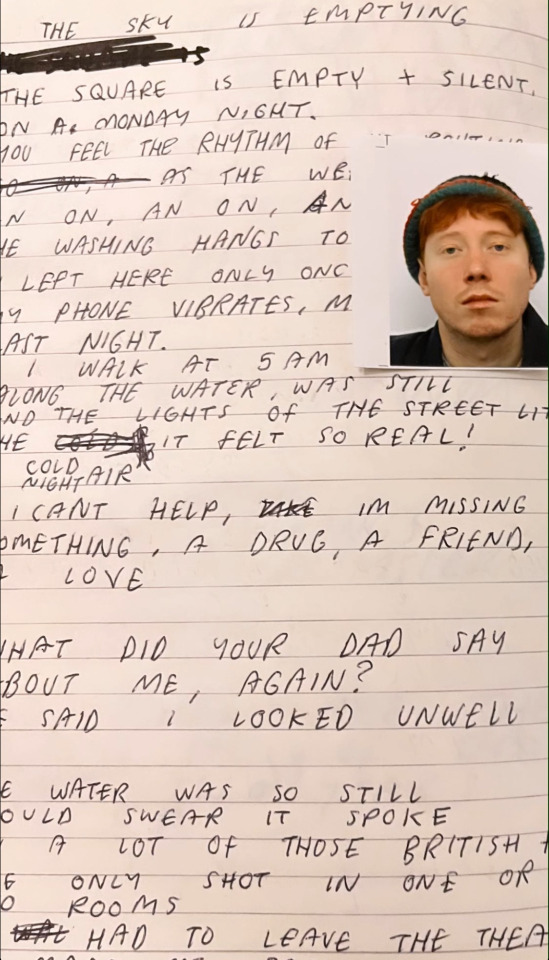 THE SKY IS EMPTYING
THE SQUARE IS EMPTY + SILENT.
ON A MONDAY NIGHT.
YOU FEEL THE RHYTHM OF
AS THE
ON, AN ON, AN
WASHING HANGS TO
LEFT HERE ONLY
PHONE VIBRATES,
NIGHT.
I WALK AT 5 AM
ALONG THE WATER, WAS STILL
THE LIGHTS OF THE STREET LIT
IT FELT SO REAL!
COLD
NIGHT AIR
I CANT HELP, IM MISSING
SOMETHING, A DRUG, A FRIEND,
LOVE
WHAT DID YOUR DAD SAY
ABOUT ME, AGAIN?
SAID I LOOKED UNWELL
WATER WAS SO STILL
SWEAR IT SPOKE
A LOT OF THOSE BRITISH
ONLY SHOT IN ONE OR
ROOMS
HAD TO LEAVE THE